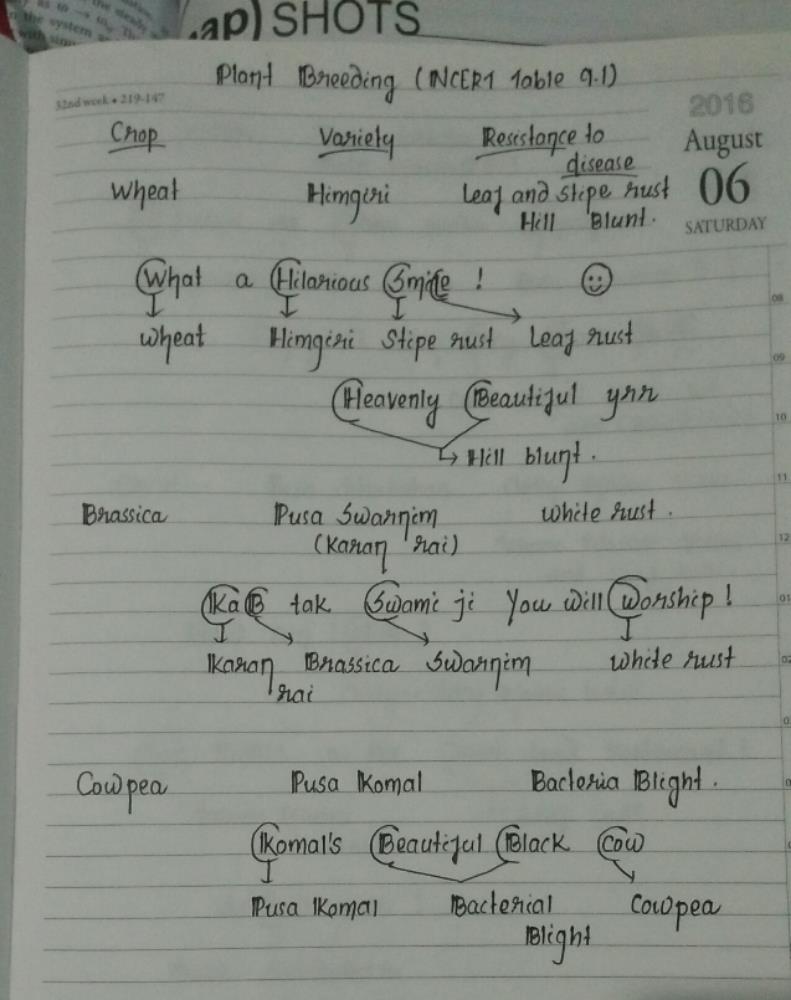 ap) SHOTS
Plant Breeding (NCERT Table 9.1)
32nd week • 219-147
2016
August
06
SATURDAY
Crop Variety Resistance to disease
Wheat Himgiri Leaf and stipe rust
Hill Blunt.
What a Hilarious Smile ! ☺
08
Wheat Himgiri Stipe rust Leaf rust
09
Heavenly Beautiful yrr
10
Hill blunt.
11
Brassica Pusa Swarnim White rust.
12
(Karan rai)
KaB tak Swami ji You will worship !
01
Karan rai Brassica Swarnim White rust
02
Cowpea Pusa Komal Bacteria Blight.
Komal's Beautiful Black Cow
Pusa Komal Bacterial Blight Cowpea